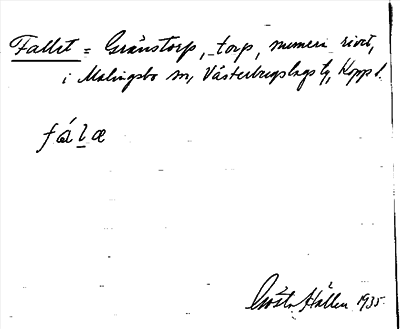 Fallet = Gränstorp, torp, numera rivet,
i Malingsbo sn, Västerbergslags tg, Kopp. l.
fálæ
Gösta Hällen 1935.